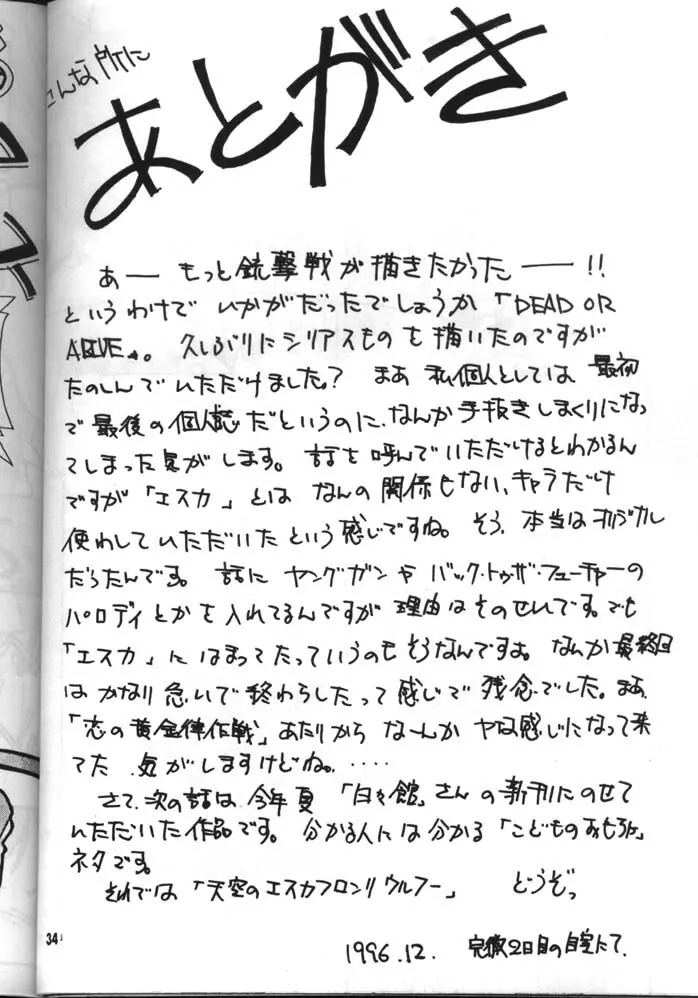 こんな所に
あとがき
あー もっと銃撃戦が描きたかったー!!
というわけで いかがだったでしょうか「DEAD OR
ALIVE」。久しぶりにシリアスものを描いたのですが
たのしんでいただけました? まあ 私個人としては 最初
で最後の個人誌だというのに、なんか手抜きしまくりになっ
てしまった気がします。話を呼んでいただけるとわかるん
ですが「エスカ」とは なんの関係もない、キャラだけ
使わしていただいたという感じですね。そう、本当はオリジナル
だったんです。話に ヤングガンや バック・トゥ・ザ・フューチャーの
パロディとかを入れてるんですが 理由はそのせいです。でも
「エスカ」にはまってたっていうのもそうなんですよ。なんか最終回
はかなり急いで終わらしたって感じで残念でした。まあ
「恋の黄金律作戦」あたりから なーんか ヤな感じになって来
てた 気がしますけどね。‥‥
さて、次の話は、今年夏「白々館」さんの新刊にのせて
いただいた作品です。分かる人には分かる「こどものおもちゃ」
ネタです。
それでは「天空のエスカフロンリウルフー」 どうぞっ
34
1996.12. 完徹2日目の自室にて.